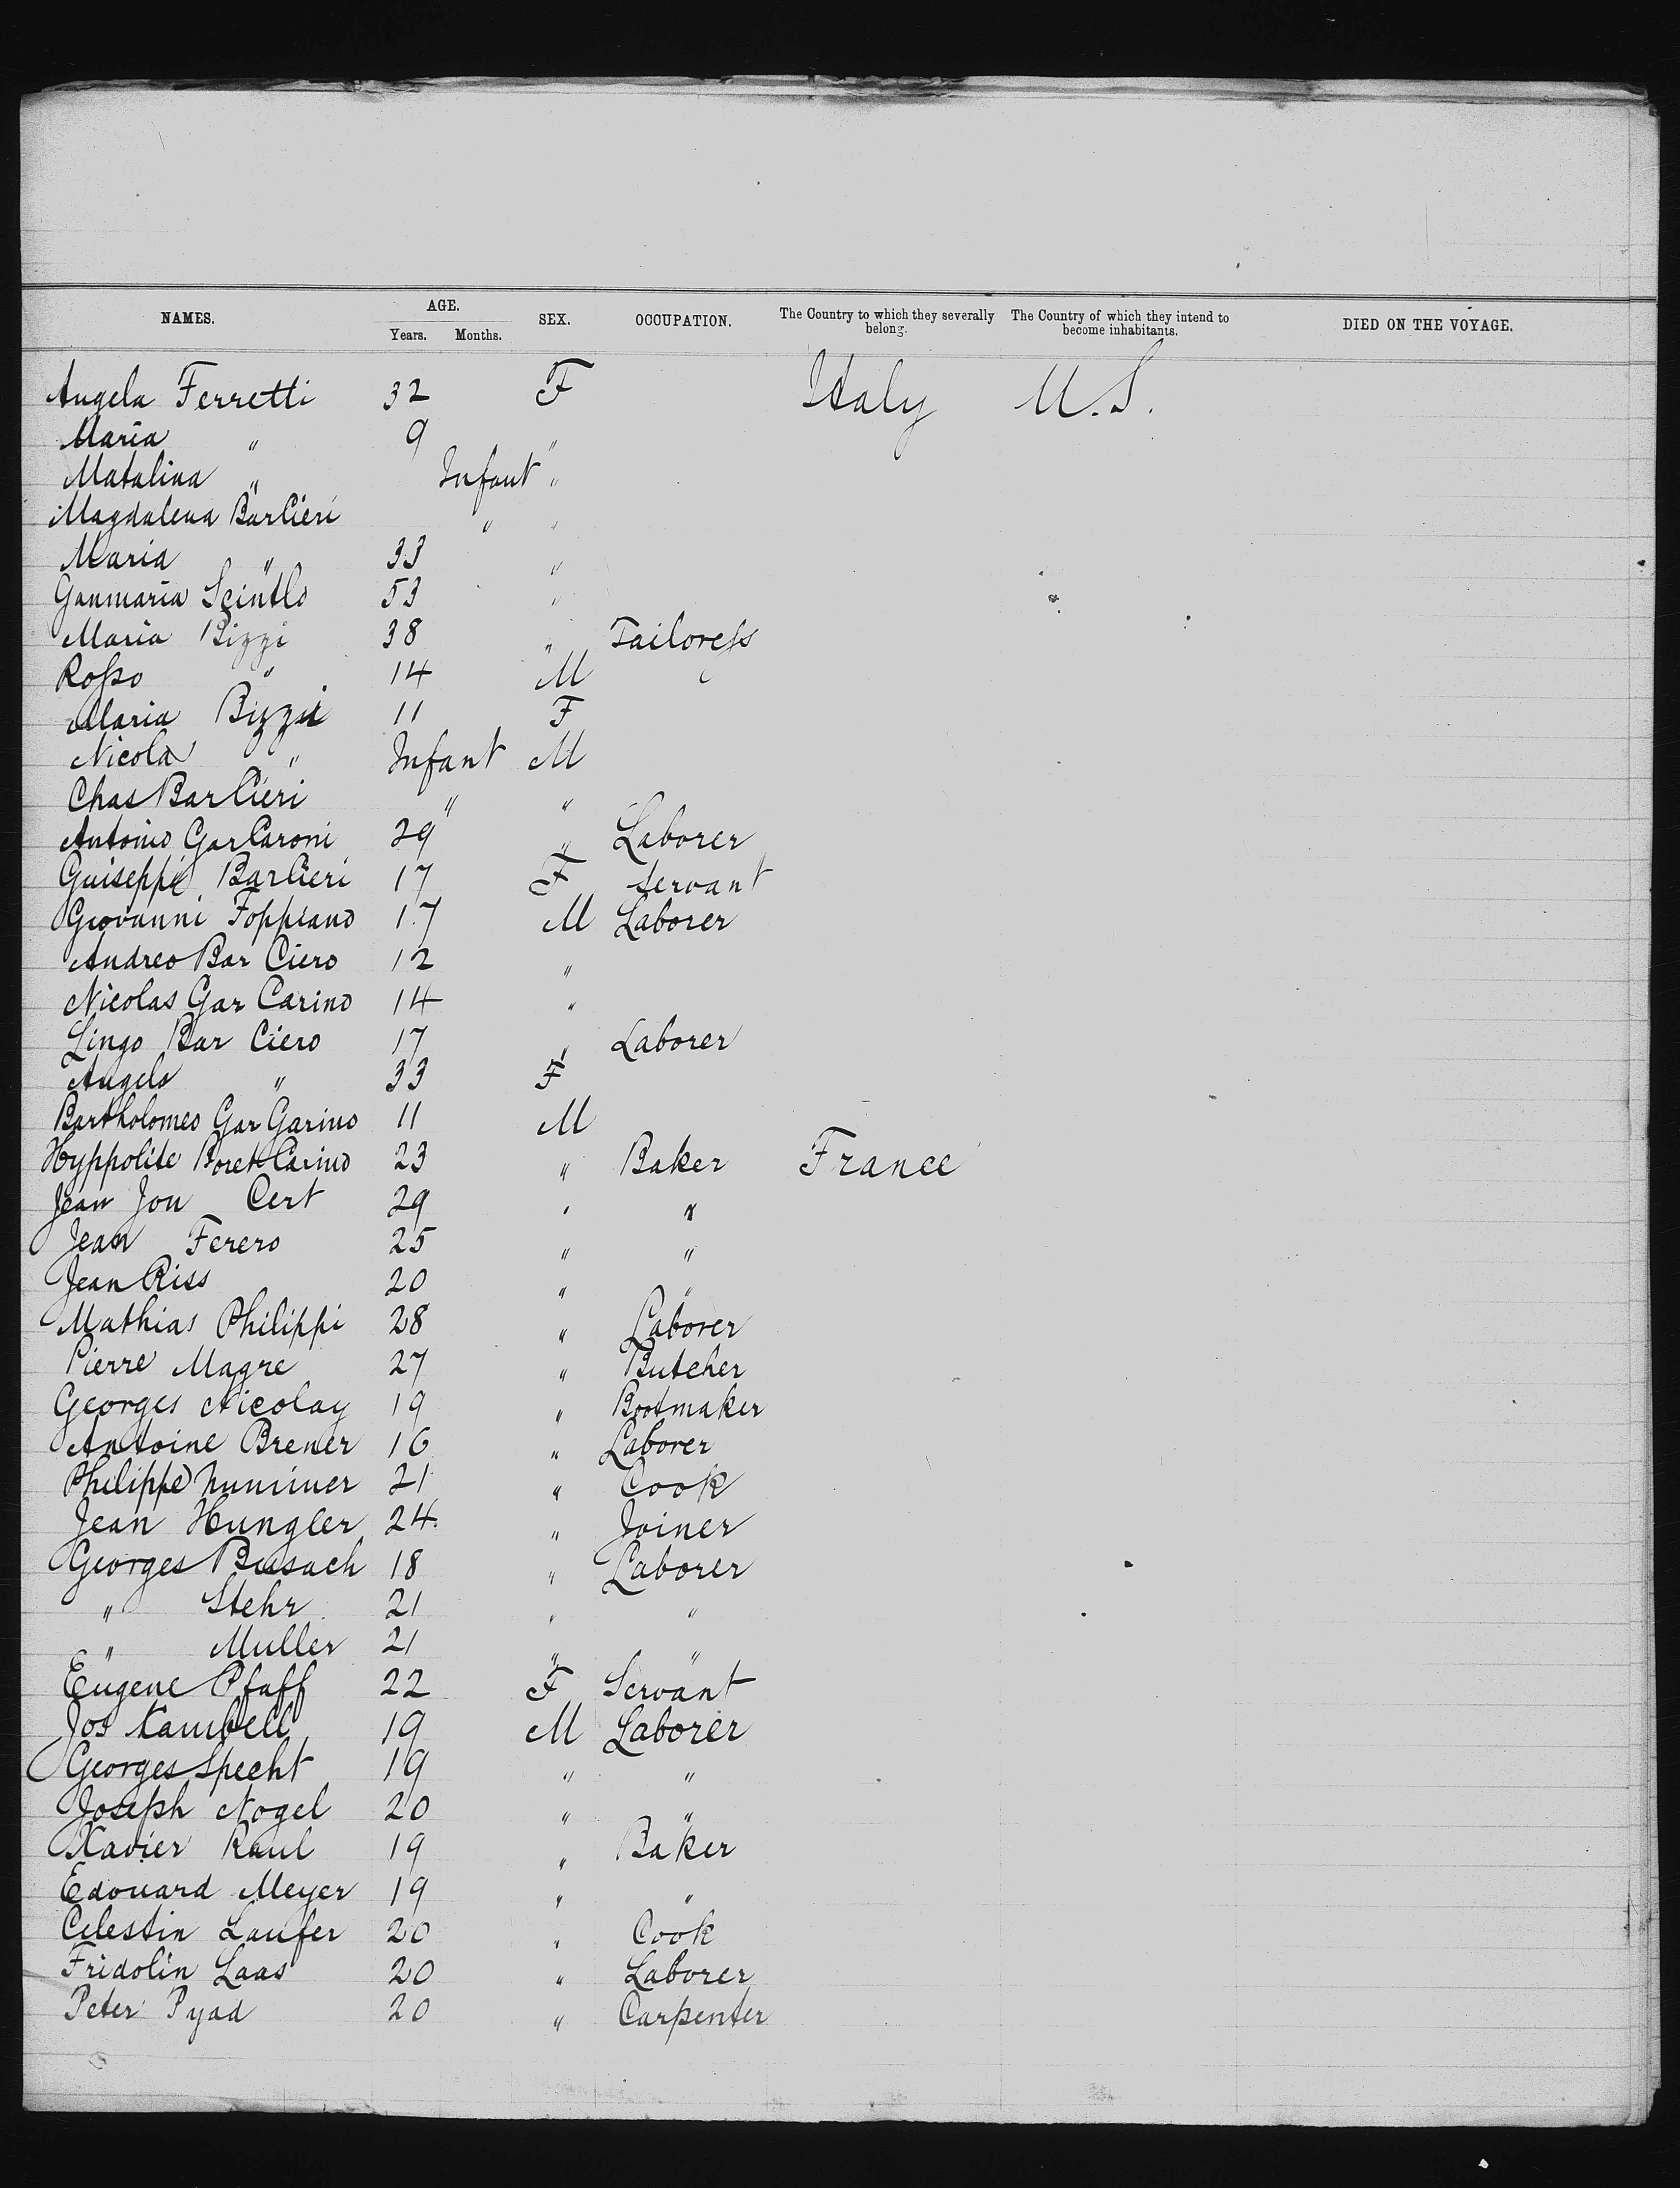 NAMES. AGE. SEX. OCCUPATION. The Country to which they severally belong. The Country of which they intend to become inhabitants. DIED ON THE VOYAGE.
Years. Months.
Angela Ferretti 32 F Italy U.S.
Maria " 9 "
Matalina " Infant "
Magdalena Barlieri " "
Maria " 33 "
Ganmaria 53 "
Maria Bizzi 38 " Tailoress
Rosso " 14 M
Maria Bizzi 11 F
Nicola " Infant M
Chas Barlieri " "
Antonio GarCaroni 29 " Laborer
Guiseppi Barlieri 17 F Servant
Giovanni Foppiano 17 M Laborer
Andreo Bar Ciero 12 "
Nicolas Gar Carino 14 "
Lingo Bar Ciero 17 " Laborer
Angelo " 33 F
Bartholomeo Gar Garino 11 M
Hyppolite Boret Carino 23 " Baker France
Jean Jou Cert 29 " "
Jean Ferero 25 " "
Jean Riss 20 " "
Mathias Philippi 28 " Laborer
Pierre Magre 27 " Butcher
Georges Nicolay 19 " Bootmaker
Antoine Brener 16 " Laborer
Philippe 21 " Cook
Jean Hungler 24 " Joiner
Georges Busach 18 " Laborer
" Stehr 21 " "
" Muller 21 " "
Eugene Pfaff 22 F Servant
Jos Kambell 19 M Laborer
Georges Specht 19 " "
Joseph Nogel 20 " "
Xavier Raul 19 " Baker
Edouard Meyer 19 " "
Celestin Laufer 20 " Cook
Fridolin Laas 20 " Laborer
Peter Pyad 20 " Carpenter